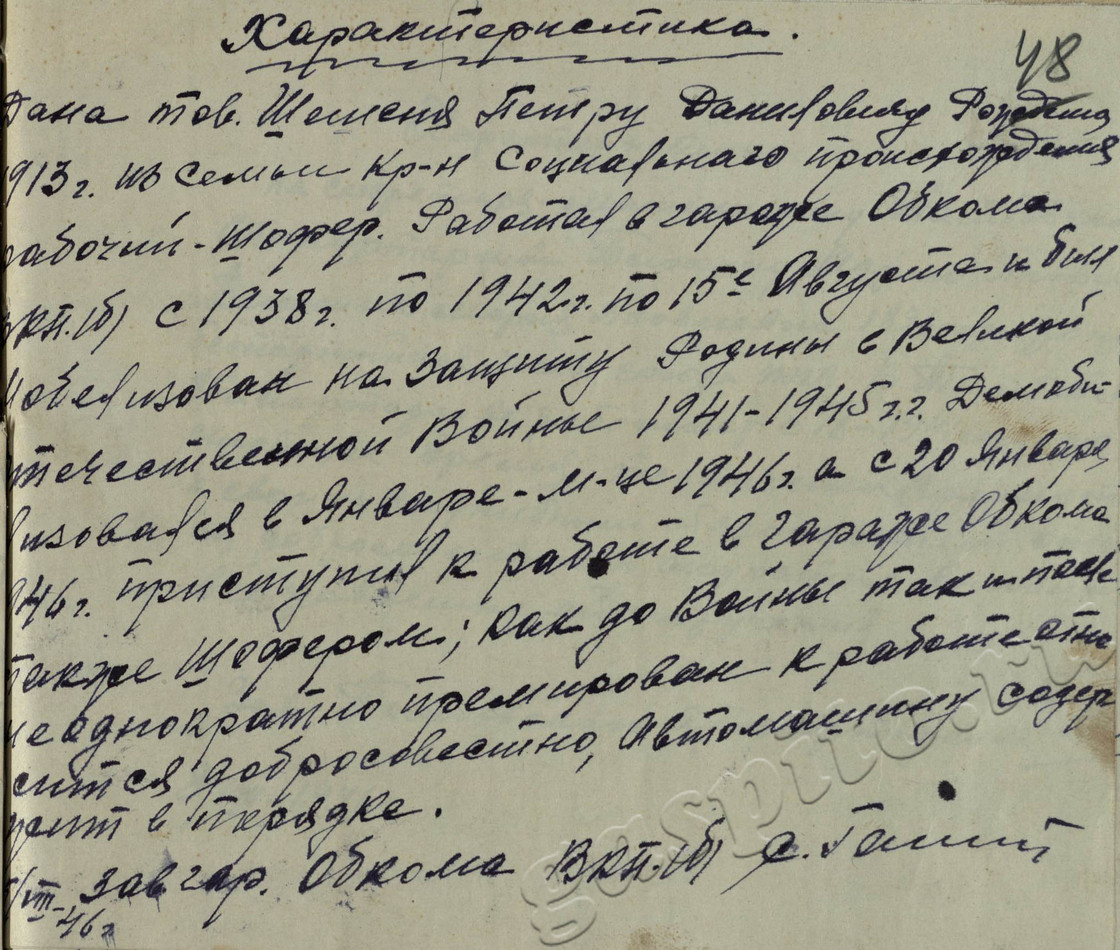 Характеристика.
48
Дана тов. Шеменя Петру Даниловичу Рождения
1913 г. из семьи кр-н Социального происхождения
рабочий - шофер. Работал в гараже Обкома
ВКП.(б) с 1938 г. по 1942 г. по 15е Августа и был
мобелизован на Защиту Родины в Великой
отечественной Войне 1941-1945 г.г. Демоби-
лизовался в Январе-м-це 1946 г. а с 20 Января
1946 г. приступил к работе в гараже Обкома
также Шофером; как до Войны так и после
неоднократно премирован к работе отно
сится добросовестно, Автомашину содер
жит в порядке.
Зав гар. Обкома ВКП.(б)
III-46 г
gaspito.ru